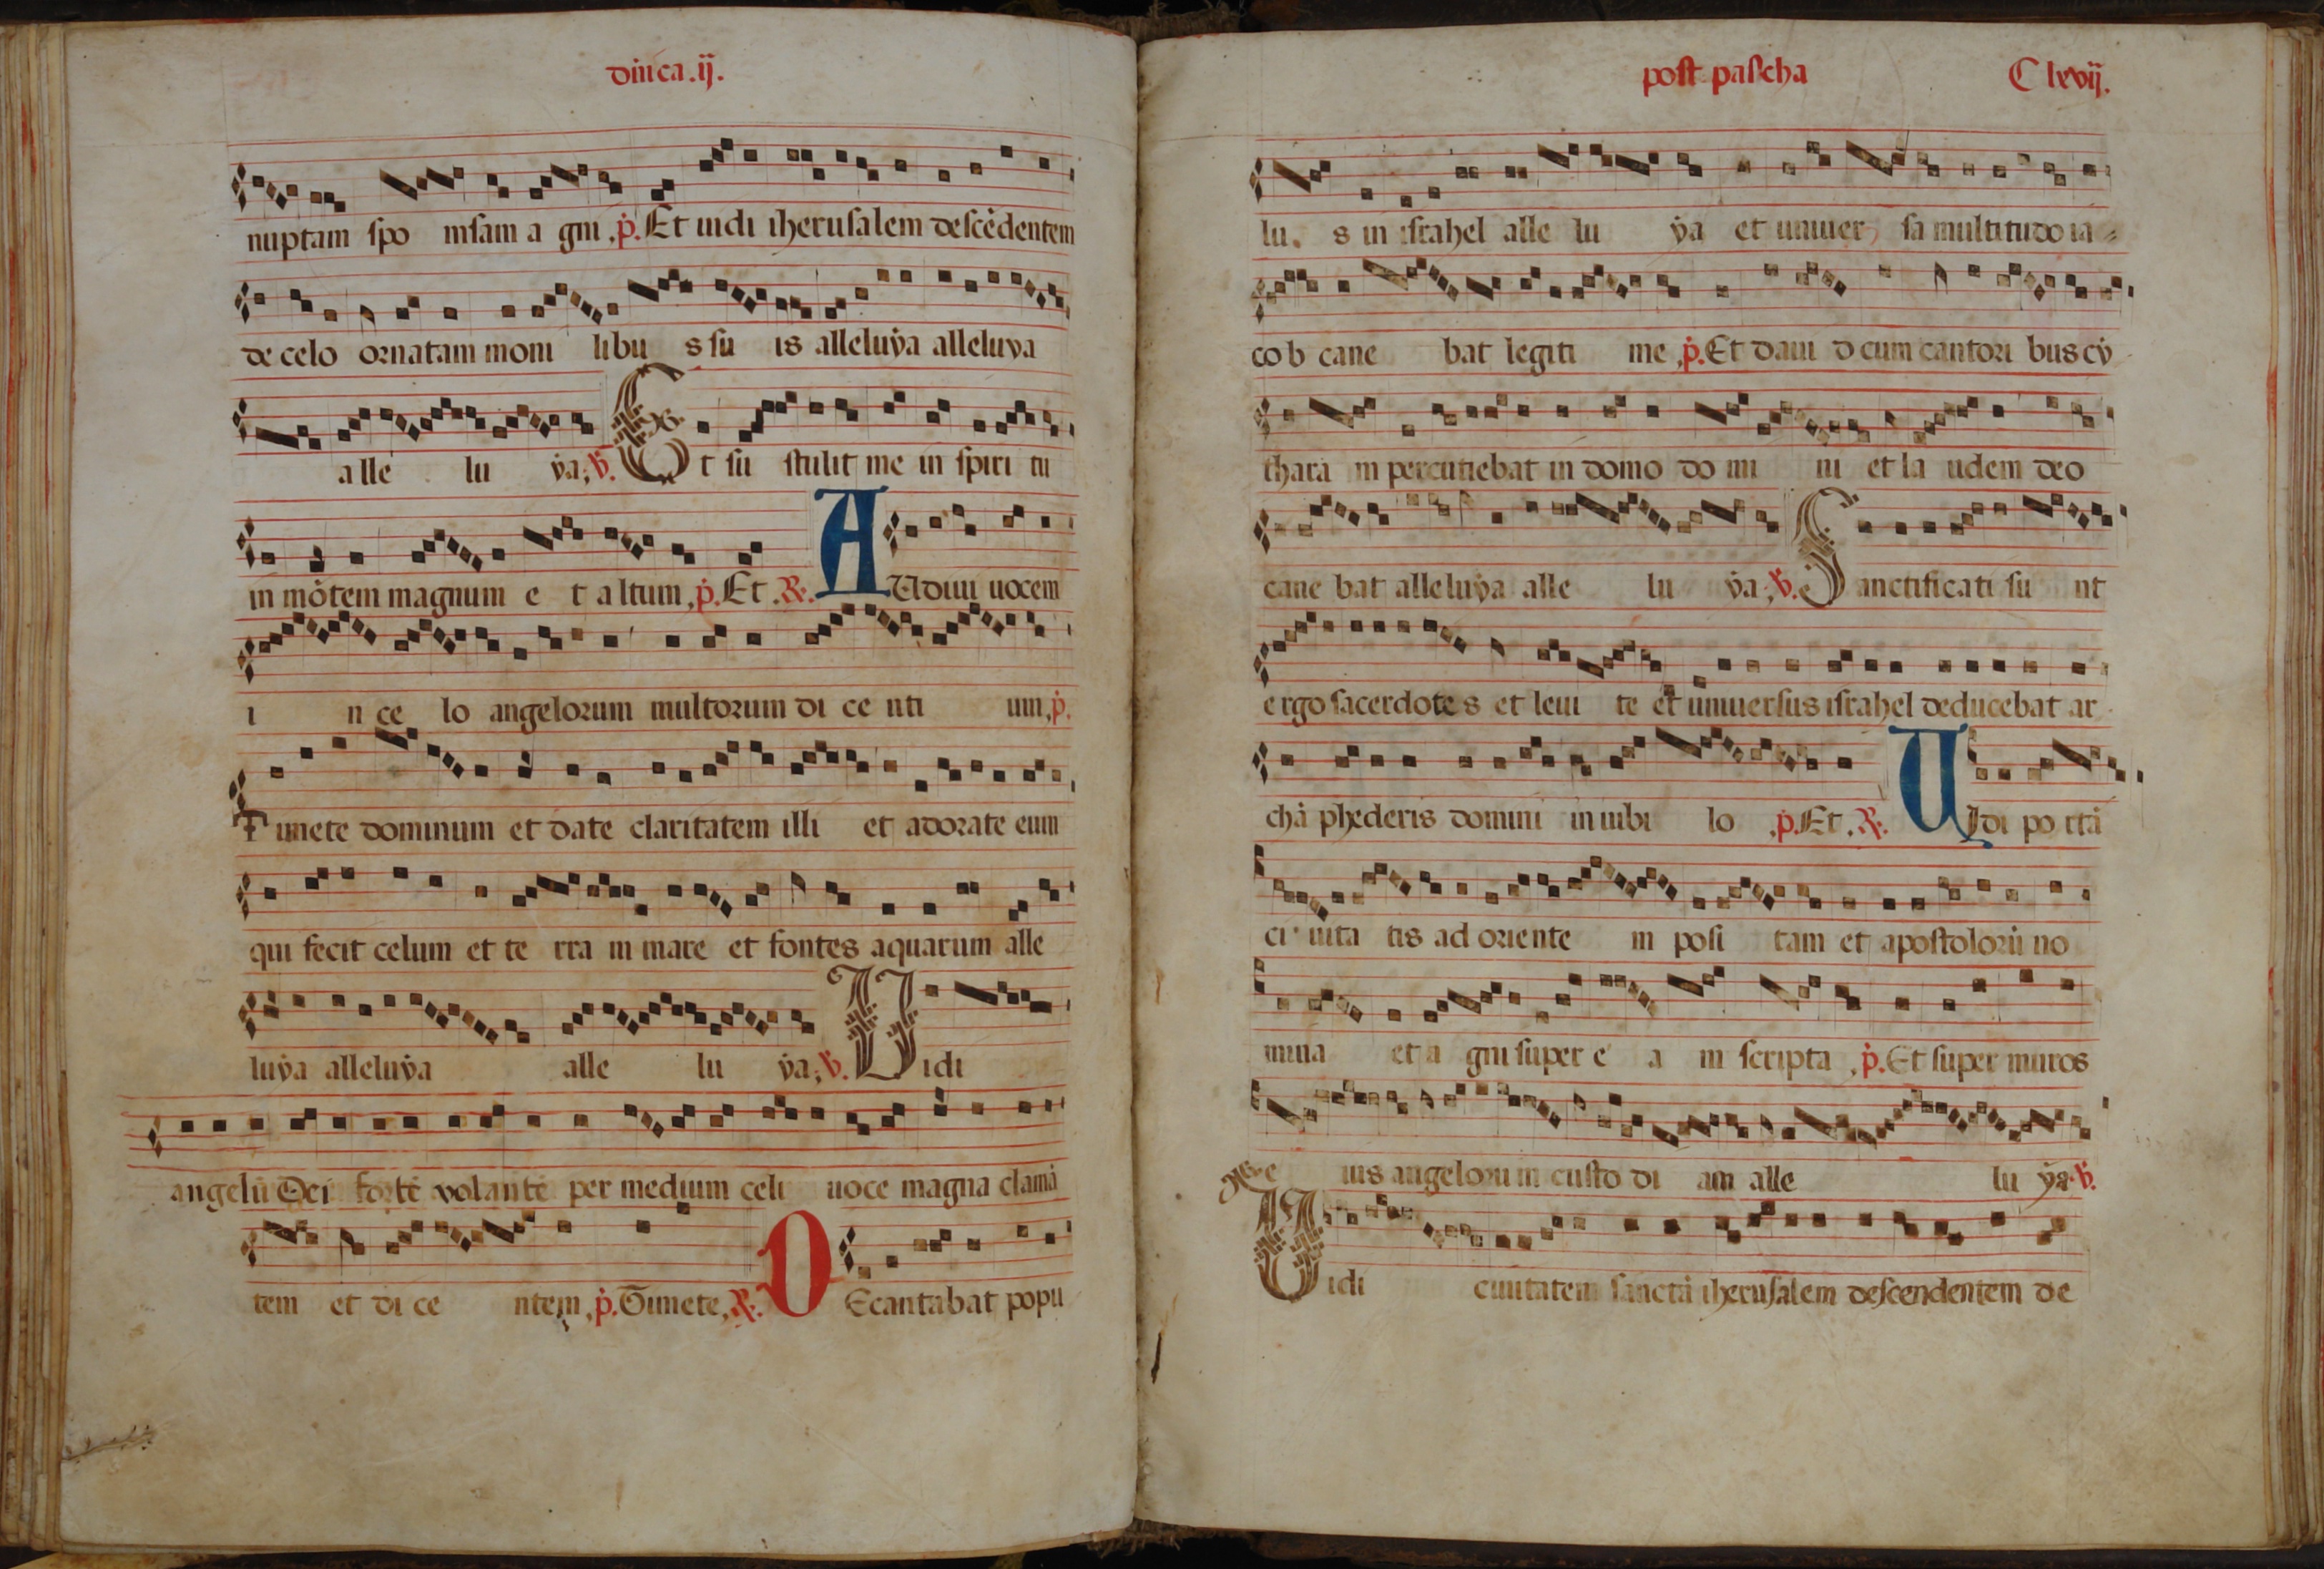 dn̄ica .ij.
nuptam spo nsam a gni .p̄. Et uidi iherusalem descēdentem
de celo ornatam moni libu s su is alleluẏa alleluya
alle lu ẏa; v̄. Et su stulit me in spiri tu
in mōtem magnum e t altum .p̄. Et . R̄. AUdiui uocem
i n ce lo angelorum multorum di ce nti um .p̄.
Timete dominum et date claritatem illi et adorate eum
qui fecit celum et te rra m mare et fontes aquarum alle
luẏa alleluẏa alle lu ẏa; v̄. Vidi
angelū Dei fortē volantē per medium celi uoce magna clamā
tem et di ce ntem .p̄. Timete . R̄. DEcantabat popu
post pascha C lxvij.
lu s in israhel alle lu ẏa et uniuer sa multitudo ia
cob cane bat legiti me .p̄. Et daui d cum cantori bus cẏ
thara m percutiebat in domo do mi ni et la udem deo
cane bat alleluẏa alle lu ẏa; v̄. Sanctificati su nt
ergo sacerdotes et leui te et uniuersus israhel deducebat ar
chā phederis domini in iubi lo .p̄. Et . R̄. UIdi po rtā
ci uita tis ad oriente m posi tam et apostolorū no
mina et a gni super e a m scripta .p̄. Et super muros
e ius angelorum custo di am alle lu ẏa. v̄.
Vidi ciuitatem sanctā iherusalem descendentem de